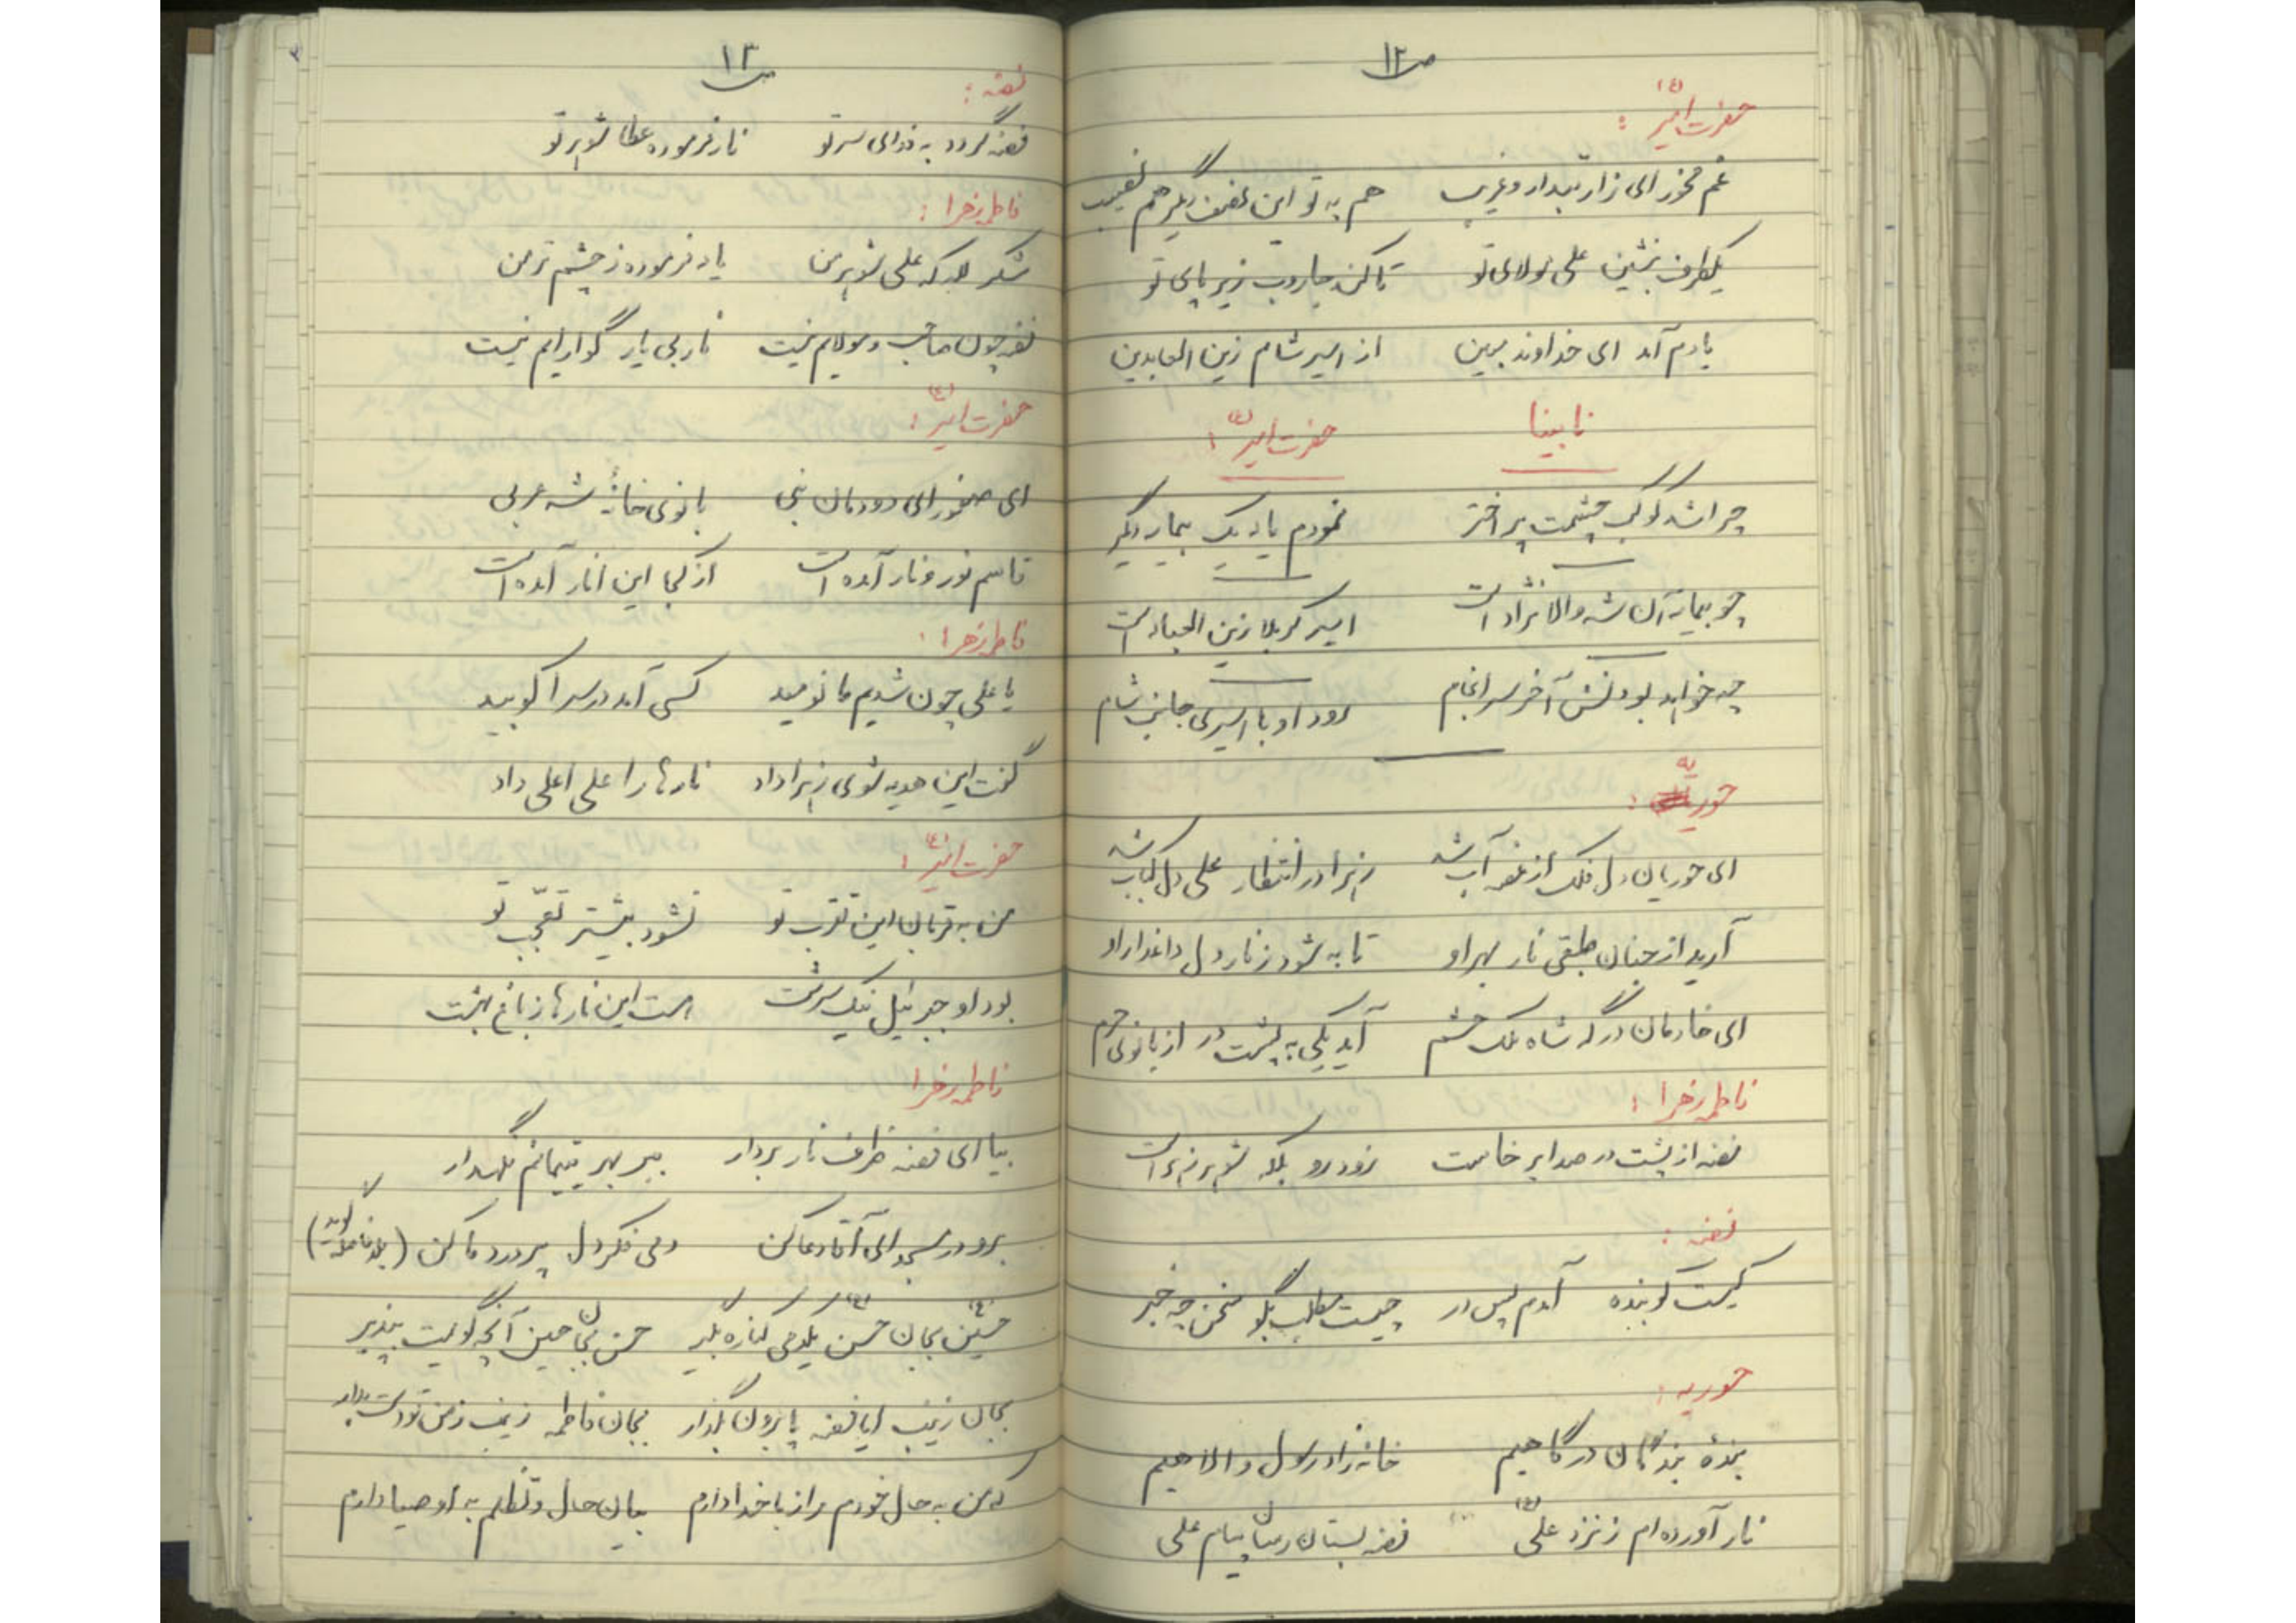 ص ۱۲
حضرت امیر (ع) :
غم مخور ای زار تبدار و غریب    هم به تو این لطف گیرم هم نصیب
یکطرف بنشین علی مولای تو    تا کند جاروب زیر پای تو
یادم آمد ای خداوند مبین    از اسیر شام زین العابدین
نابینا    حضرت امیر (ع) :
چرا شد کوکب چشمت پر اختر    نمودم یاد یک بیمار دیگر
چو بیمار آن شه والانژاد است    اسیر کربلا زین العباد است
چه خواهد بودنش آخر سرانجام    رود او با اسیری جانب شام
حوریه :
ای حوریان دل فلک از غصه آب شد    زهرا در انتظار علی دل کباب شد
آرید از جنان طبقی نار بهر او    تا به شود ز نار دل داغدار او
ای خادمان درگه شاه ملک حشم    آید یکی به پشت در از بانوی حرم
فاطمه زهرا :
فضه از پشت در صدا برخاست    زود رو بلکه شوهر زهراست
فضه :
کیست کوبنده آمدم پس در    چیست مطلب بگو سخن چه خبر
حوریه :
بندهٔ بندگان درگاهیم    خانه زاد رسول والاهیم
نار آورده ام ز نزد علی (ع)    فضه بستان رسان پیام علی
ص ۱۳
فضه :
فضه گردد به فدای سر تو    نار فرموده عطا شوهر تو
فاطمه زهرا :
شکر لله که علی شوهر من    یاد فرموده ز چشم تر من
فضه چون صاحب و مولایم نیست    نار بی یار گوارایم نیست
حضرت امیر (ع) :
ای صفورای دودمان نبی    بانوی خانهٔ شه عربی
قاسم نور و نار آمده است    از کجا این انار آمده است
فاطمه زهرا :
یا علی چون شدیم ما نومید    کسی آمد در سرا کوبید
گفت این هدیه شوی زهرا داد    نارها را علی اعلی داد
حضرت امیر (ع) :
من به قربان این تقرب تو    نشود بیشتر تعجّب تو
بود او جبرئیل نیک سرشت    هست این نارها ز باغ بهشت
فاطمه زهرا
بیا ای فضه ظرف نار بردار    ببر بهر یتیمانم نگهدار
برو در مسجد ای آقا دعا کن    دمی فکر دل پر درد ما کن (بعد فاطمه گوید)
حسین (ع) بجان حسن (ع) یکدمی کناره بگیر    حسن بجان حسین آنچه گویمت بپذیر
بجان زینب ایا فضه پا برون بگذار    بجان فاطمه زینب ز من تو دست بدار
که من به حال خودم راز با خدا دارم    بیان حال و تظلم به اوصیا دارم